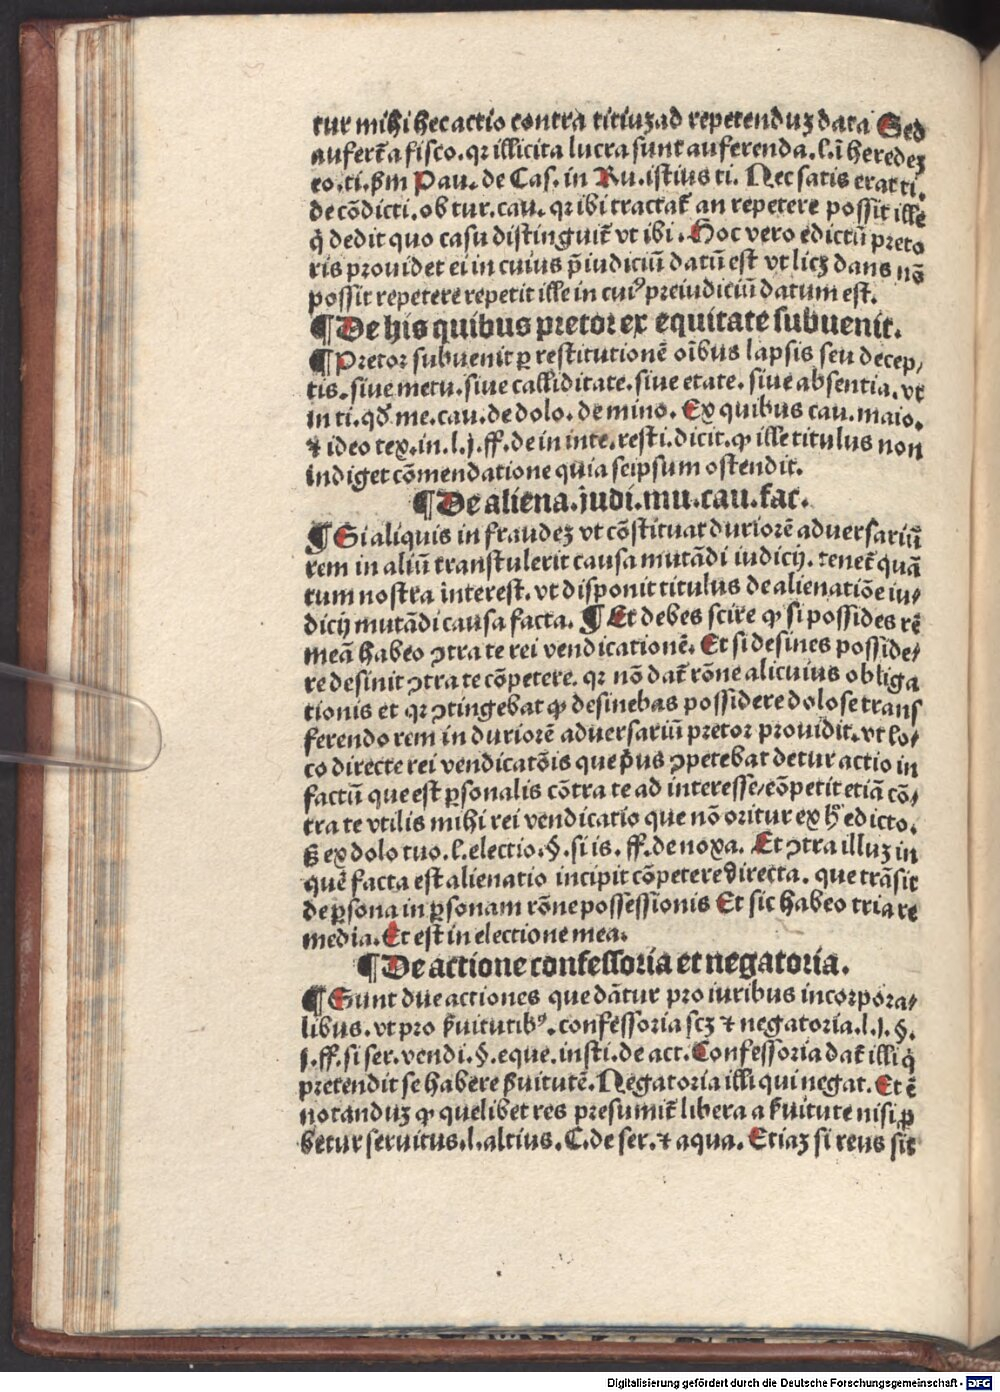 tur mihi hec actio contra titiuꝫ ad repetenduꝫ data Sed
aufert̄ a fisco. qꝛ illicita lucra sunt auferenda. l. ī heredeꝫ
eo. ti. ßm Pau. de Cas. in Ru. istius ti. Nec satis erat ti.
de cōdicti. ob tur. cau. qꝛ ibi tractat̄ an repetere possit ille
q̄ dedit quo casu distinguit̄ vt ibi. Hoc vero edictū preto
ris prouidet ei in cuius p̄iudiciū datū est vt licꝫ dans nō
possit repetere repetit ille in cuiꝰ preiudiciū datum est.
¶ De his quibus pretor ex equitate subuenit.
¶ Pretor subuenit ꝑ restitutionē oībus lapsis seu decep⸗
tis. siue metu. siue calliditate. siue etate. siue absentia. vt
in ti. qd̓ me. cau. de dolo. de mino. Ex quibus cau. maio.
⁊ ideo tex. in. l. j. ff. de in inte. resti. dicit. ꝙ ille titulus non
indiget cōmendatione quia seipsum ostendit.
¶ De aliena. iudi. mu. cau. fac.
¶ Si aliquis in fraudeꝫ vt cōstituat duriorē aduersariū
rem in aliū transtulerit causa mutādi iudicij. tenet̄ quā
tum nostra interest. vt disponit titulus de alienatiōe iu⸗
dicij mutādi causa facta. ¶ Et debes scire ꝙ si possides rē
meā habeo ꝯtra te rei vendicationē. Et si desines posside⸗
re desinit ꝯtra te cōpetere. qꝛ nō dat̄ rōne alicuius obliga
tionis et qꝛ ꝯtingebat ꝙ desinebas possidere dolose trans
ferendo rem in duriorē aduersariū pretor prouidit. vt lo⸗
co directe rei vendicatōis que p̄us ꝯpetebat detur actio in
factū que est ꝑsonalis cōtra te ad interesse/cōpetit etiā cō⸗
tra te vtilis mihi rei vendicatio que nō oritur ex h̄ edicto.
ß ex dolo tuo. l. electio. §. si is. ff. de noxa. Et ꝯtra illuꝫ in
quē facta est alienatio incipit cōpetere directa. que trāsit
de ꝑsona in ꝑsonam rōne possessionis Et sic habeo tria re
media. Et est in electione mea.
¶ De actione confessoria et negatoria.
¶ Sunt due actiones que dātur pro iuribus incorpora⸗
libus. vt pro ẜuitutibꝰ. confessoria scꝫ ⁊ negatoria. l. j. §.
j. ff. si ser. vendi. §. eque. insti. de act. Confessoria dat̄ illi q̄
pretendit se habere ẜuitutē. Negatoria illi qui negat. Et ē
notanduꝫ ꝙ quelibet res presumit̄ libera a ẜuitute nisi ꝓ
betur seruitus. l. altius. C. de ser. ⁊ aqua. Etiaꝫ si reus sit
Digitalisierung gefördert durch die Deutsche Forschungsgemeinschaft - DFG